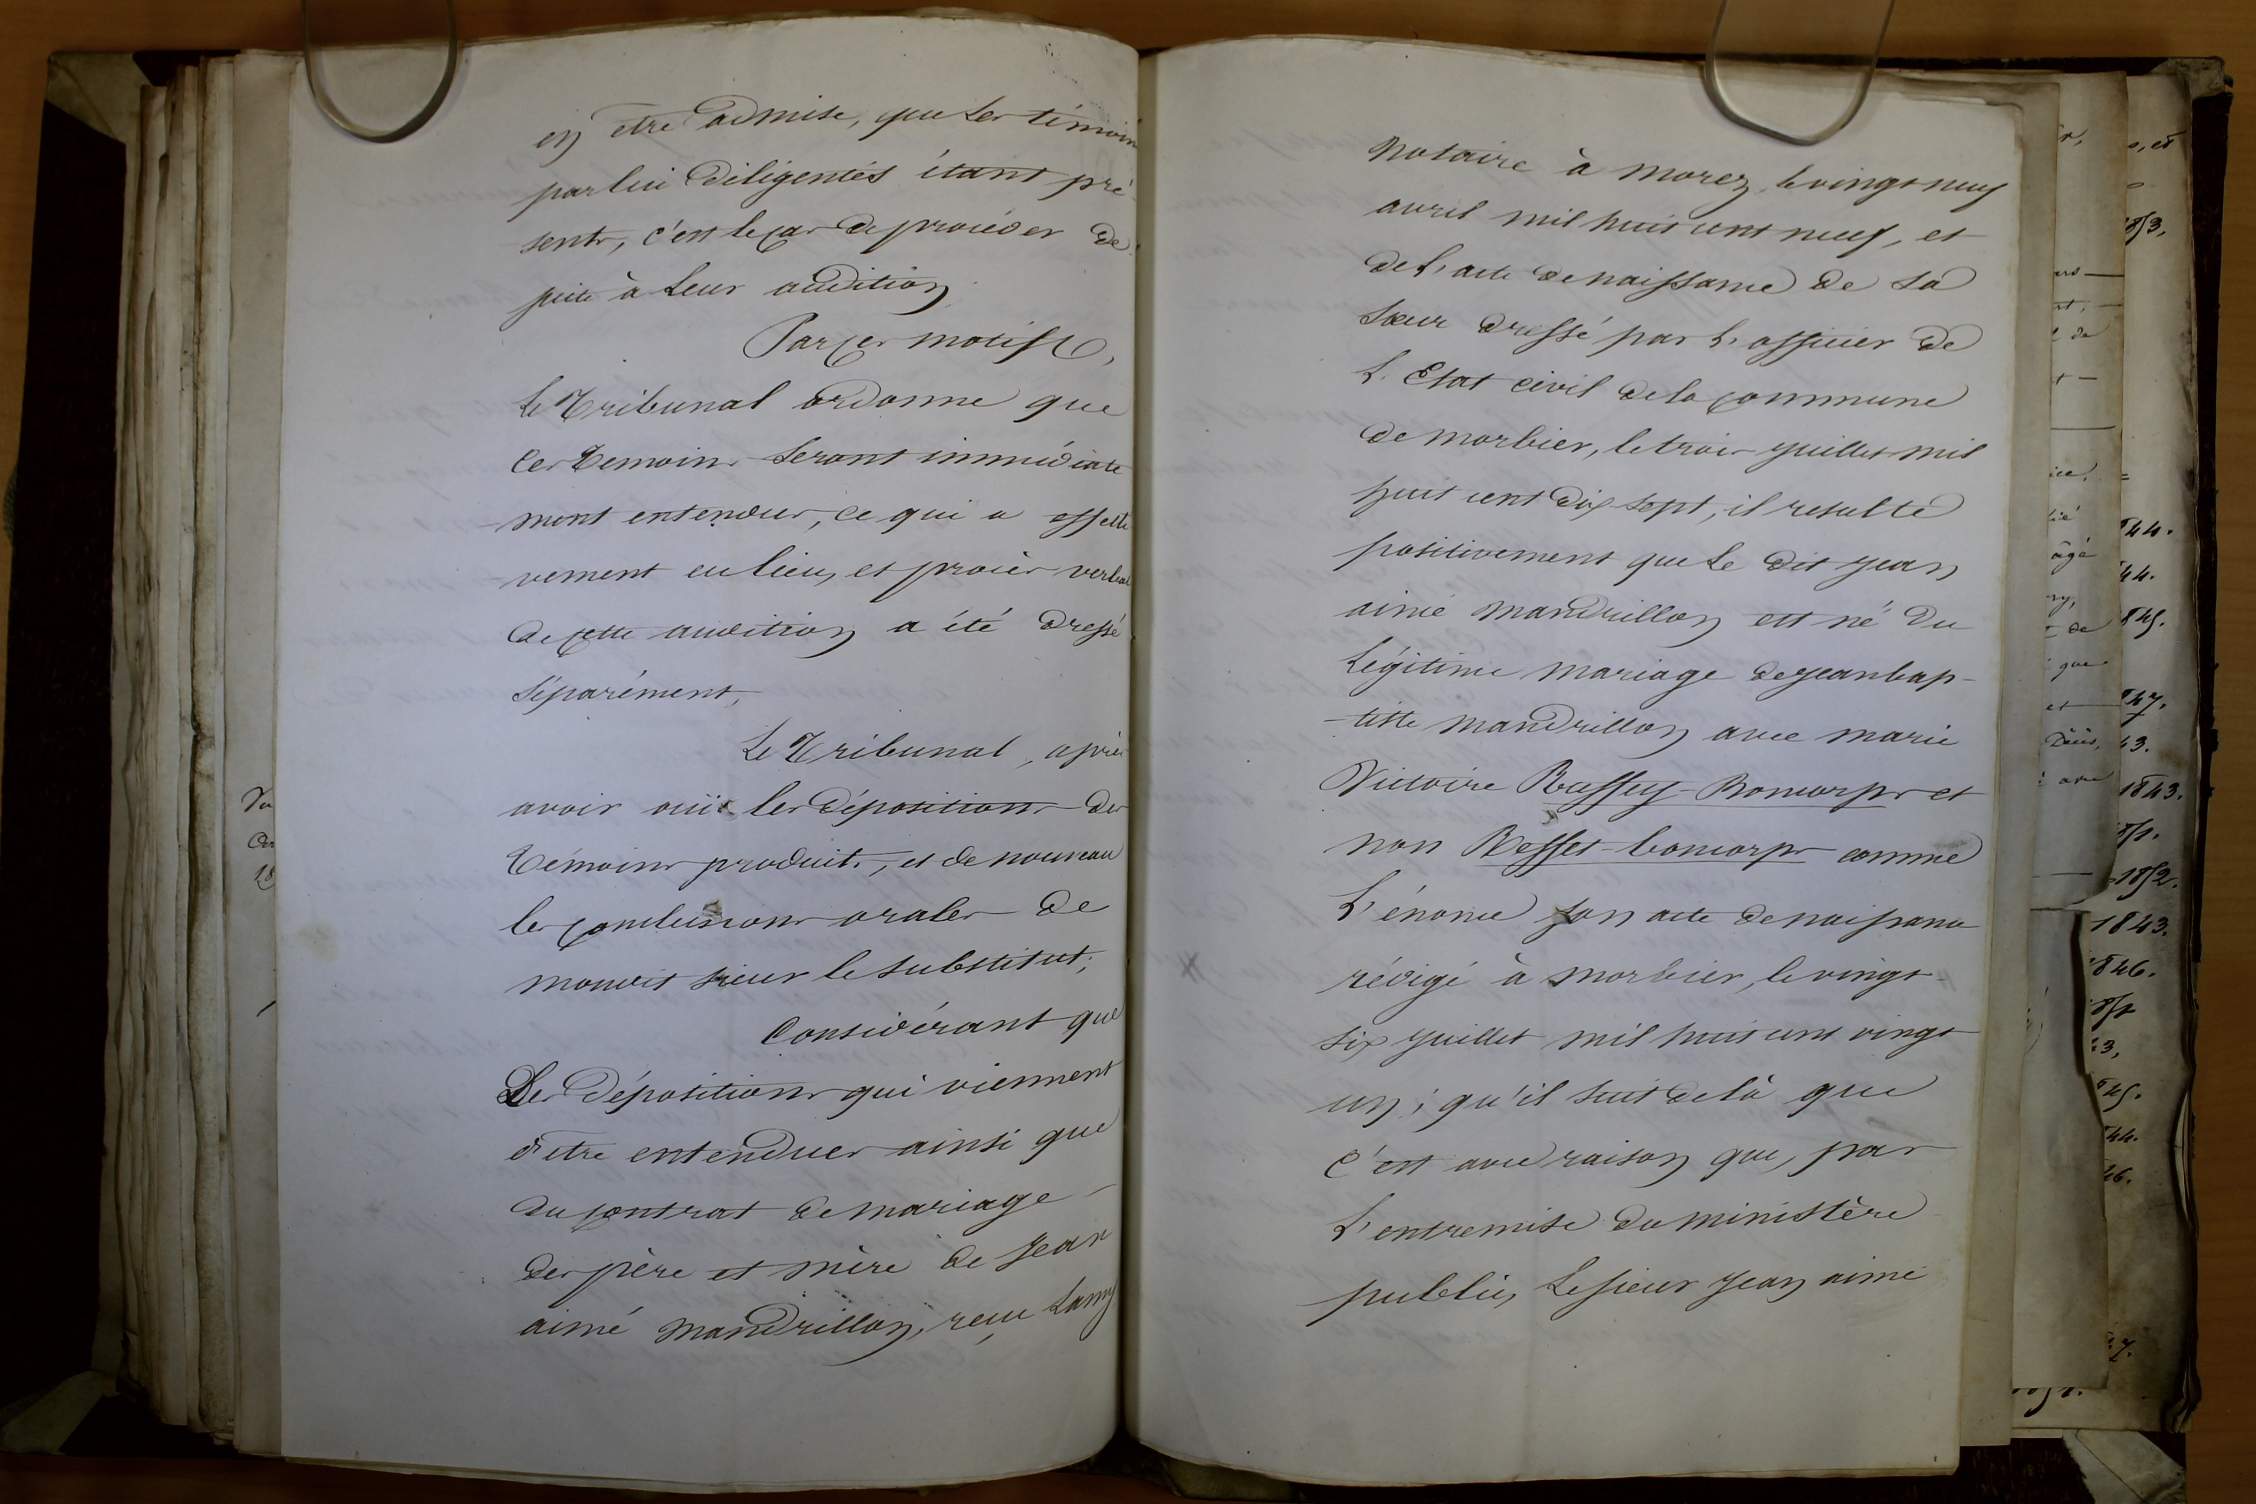 en être admise, que les témoins
par lui diligentés étant pré
sents, c'est le cas de procéder de
suite à leur audition
Par ces motifs,
Le Tribunal ordonne que
ces temoins seront immédiate
ment entendus, ce qui a effecti
vement eu lieu, et procès verbal
de cette audition a été dressé
séparément,
Le Tribunal, après
avoir ouï les dépositions des
témoins produits, et de nouveau
les conclusions orales de
monsieur le substitut;
Considérant que
Des dépositions qui viennent
d'etre entendues ainsi que
du contrat de mariage
des père et mère de Jean
aimé Mandrillon, reçu Lamy
notaire à Morez, le vingt neuf
avril mil huit cent neuf, et
de l'acte de naissance de sa
sœur dressé par l'officier de
l'Etat civil de la commune
de morbier, le trois juillet mil
huit cent dix sept, il resulte
positivement que le dit jean
aimé Mandrillon est né du
légitime mariage de jean bap-
-tiste Mandrillon avec marie
Victoire Bassey-Boncorps et
non Besset-boncorps comme
l'énonce son acte de naissance
rédigé à Morbier, le vingt
six juillet mil huit cent vingt
un; qu'il suit delà que
c'est avec raison que, par
l'entremise du ministère
public, le sieur jean aimé
1843.
1852.
1843.